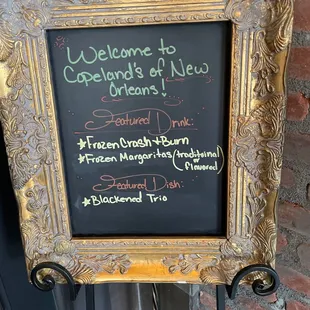 Welcome to
Copeland's of New
Orleans!
Featured Drink:
*Frozen Crash + Burn
*Frozen Margaritas (traditional or flavored)
Featured Dish:
*Blackened Trio